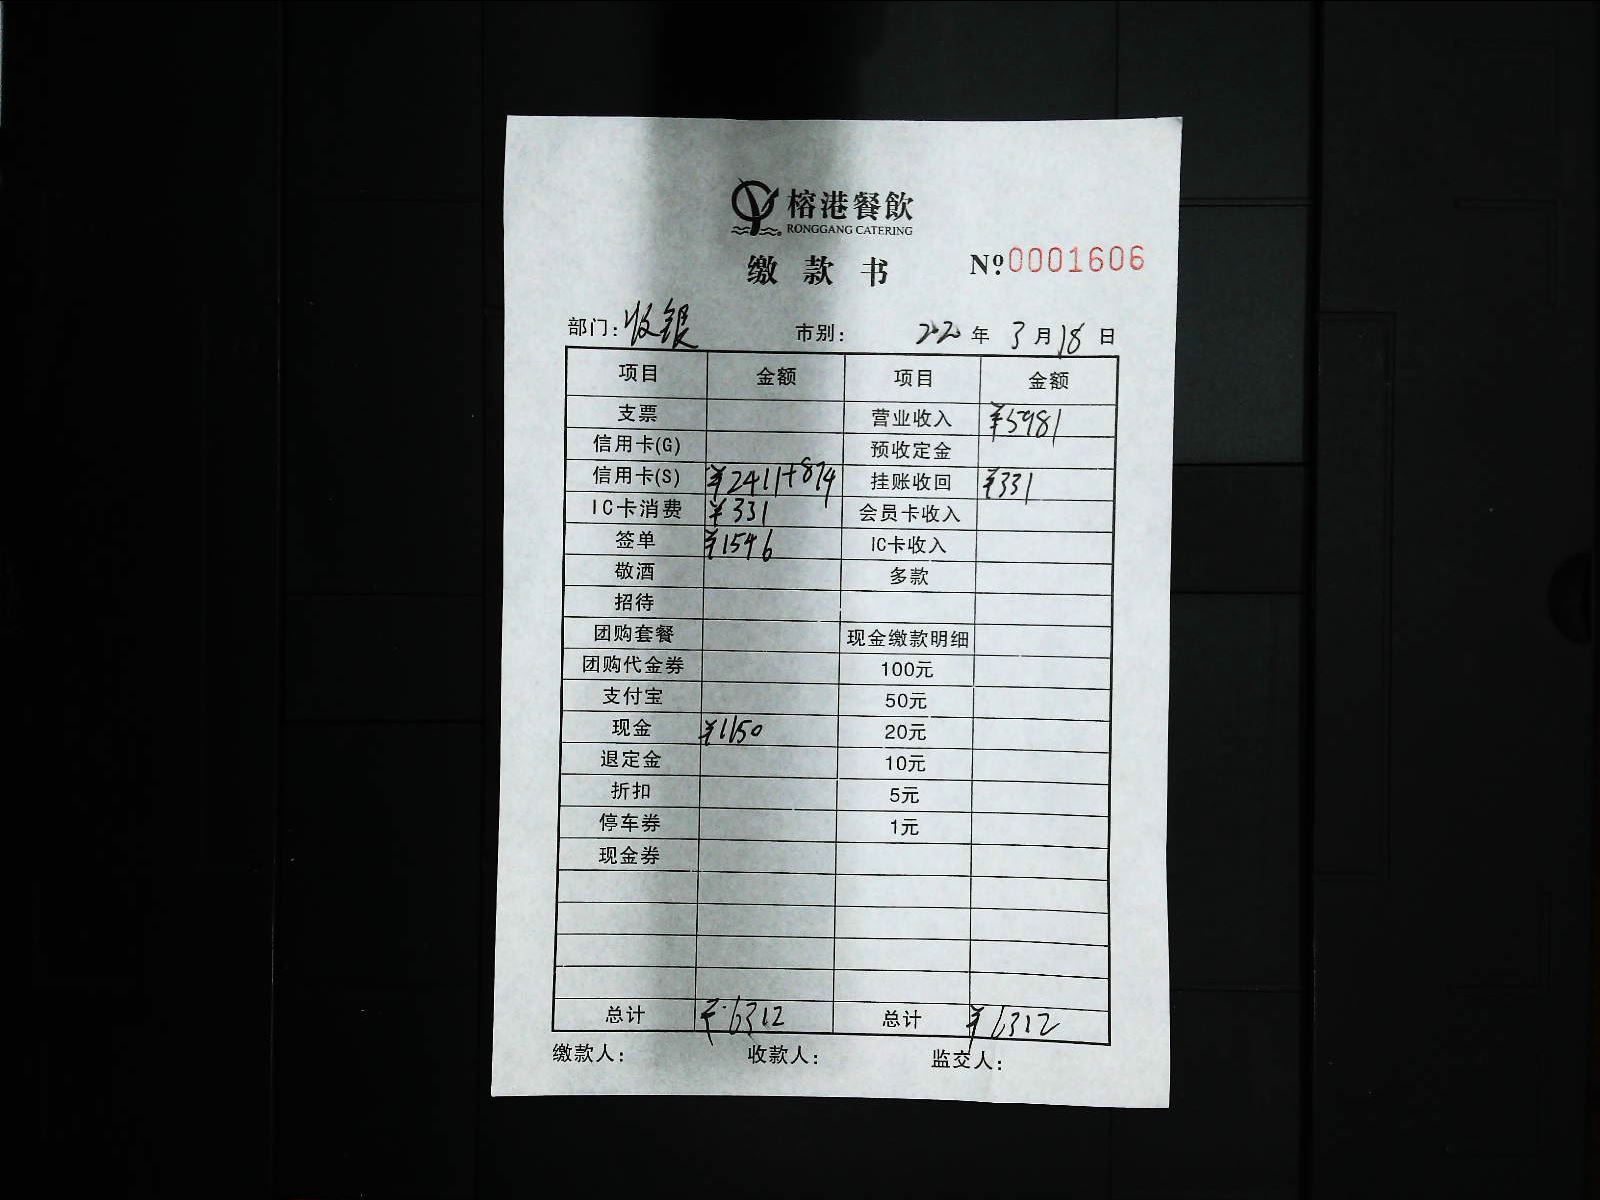 榕港餐飲
RONGGANG CATERING
缴款书 Nº0001606
部门:收银 市别: 2020年3月18日
项目 金额 项目 金额
支票 营业收入 ¥5981
信用卡(G) 预收定金
信用卡(S) ¥2411+874 挂账收回 ¥331
IC卡消费 ¥331 会员卡收入
签单 ¥1546 IC卡收入
敬酒 多款
招待
团购套餐 现金缴款明细
团购代金券 100元
支付宝 50元
现金 ¥1150 20元
退定金 10元
折扣 5元
停车券 1元
现金券
总计 ¥6312 总计 ¥6312
缴款人: 收款人: 监交人: